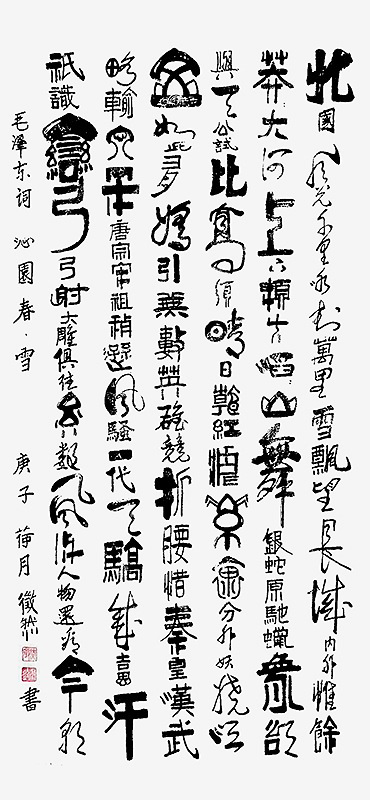 北國風光千里冰封萬里雪飄望長城内外惟餘
莽大河上下頓失滔山舞銀蛇原馳蠟象欲
與天公試比高須晴日看紅裝素裹分外妖嬈江
山如此多嬌引無數英雄競折腰惜秦皇漢武
略輸文采唐宗宋祖稍遜風騷一代天驕成吉思汗
祇識彎弓射大雕俱往矣數風流人物還看今朝
毛澤东词 沁園春·雪 庚子荷月 書